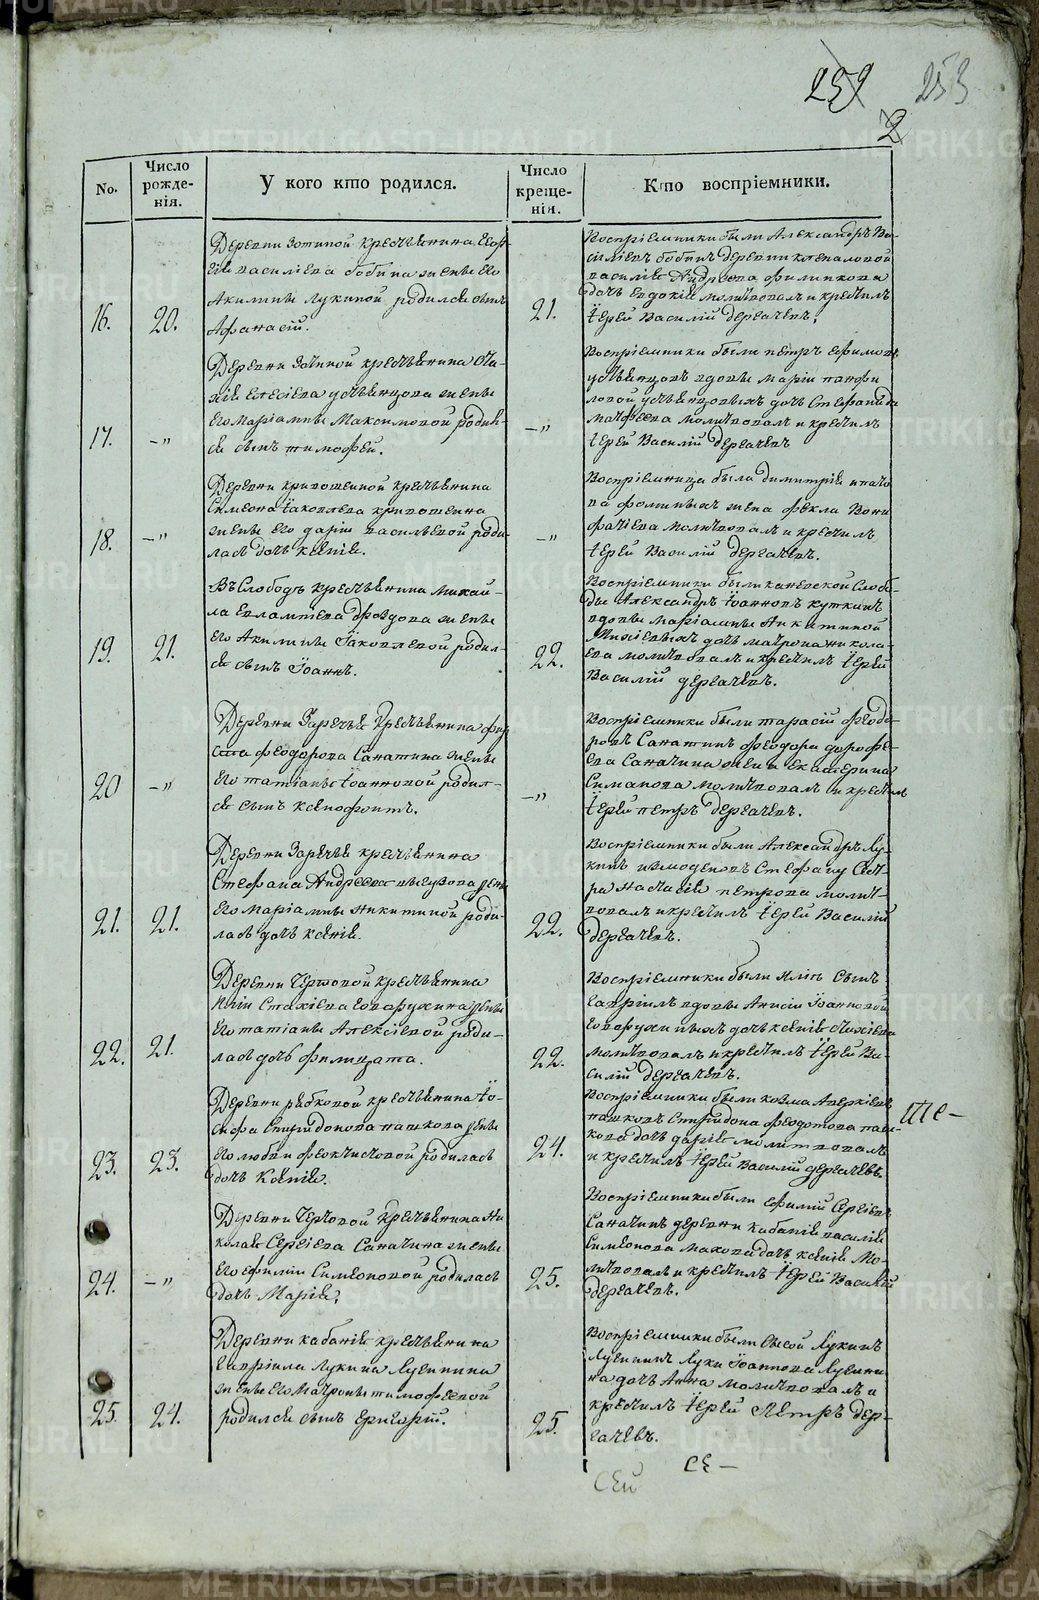 METRIKI.GASO-URAL.RU
259 253
2
No.
Число рожде-нія.
У кого кто родился.
Число креще-нія.
Кто воспріемники.
16.
20.
Деревни Зотиной крестьянина Геор
гія василіева бобина жены Его
Акилины лукиной родился сынъ
Афанасій.
21.
Воспріемники были Александръ Ва-
силіевъ бобинъ деревни
василія Андреева филипкова
дочь Евдокія молитвовалъ и крестилъ
Іерей Василій дергачевъ.
17.
—„
Деревни Зотиной крестьянина
устьянцова жены
Его Маріамны Максимовой родил-
ся сынъ тимофей.
—„
Воспріемники были петръ Ефимовъ
устьянцовъ вдовы маріи панфи
ловой устьянцовыхъ дочь Стефанида
матфеева молитвовалъ и крестилъ
Іерей Василій дергачевъ
18.
—„
Деревни кривошеиной крестьянина
Симеона Іаковлева кривошеина
жены Его даріи васильевой роди-
лась дочь ксенія.
—„
Воспріемница была димитрія игнать
ва фоминыхъ жена фекла Вони
фатіева молитвовалъ и крестилъ
Іерей Василій дергачевъ.
19.
21.
Въ Слободѣ крестьянина Михай-
ла Евлампіева дроздова жены
Его Акилины Іаковлевой родил-
ся сынъ Іоаннъ.
22.
Воспріемники были каменской Слобо-
ды Александръ Іоанновъ куткинъ
вдовы маріамны Никитиной
дочь матрона никола-
ева молитвовалъ и крестилъ Іерей
Василій дергачевъ.
20
—„
Деревни Заречья крестьянина фир
са феодорова Санатина жены
Его татіаны Іоанновой родил-
ся сынъ ксенофонтъ.
—„
Воспріемники были тарасій феодо-
ровъ Санатинъ феодора дорофе-
ева Саначина жена Екатерина
Симанова молитвовалъ и крестилъ
Іерей петръ дергачевъ.
21.
21.
Деревни Заречья крестьянина
Стефана Андреева жены
Его Маріамны Никитиной роди-
лась дочь ксенія.
22.
Воспріемники были Александръ Лу-
кинъ измоденовъ Стефану Сест-
ра Настасія петрова молит-
вовалъ и крестилъ Іерей Василій
дергачевъ.
22.
21.
Деревни Чертовой крестьянина
Иліи Стахіева Говорухина жены
Его татіаны Алексіевой роди-
лась дочь филицата.
22.
Воспріемники были Иліи Сынъ
Гавріилъ вдовы Анисіи Іоанновой
Говорухиныхъ дочь ксенія
молитвовалъ и крестилъ Іерей Ва-
силій дергачевъ.
23.
23.
Деревни рябковой крестьянина Іо-
сифа Спиридонова пашкова жены
Его любви феоктистовой родилась
дочь Ксенія.
24.
Воспріемники были козма Аверкіевъ
пашковъ Спиридона феодотова паш-
кова дочь дарія молитвовалъ
и крестилъ Іерей василій дергачевъ.
ше—
24.
—„
Деревни Чертовой крестьянина Ни
колая Сергіева Саначина жены
Его ефиміи Симеоновой родилась
дочь Марія;
25.
Воспріемники были Ефимій Сергіевъ
Саначинъ деревни кабаніи василія
Симеонова махова дочь ксенія Мо-
литвовалъ и крестилъ Іерей Василій
дергачевъ.
25.
24.
Деревни кабаніи крестьянина
Гавріила Лукина Лугинина
жены Его Матроны тимофеевой
родился сынъ григорій.
25.
Воспріемники были Сысой Лукинъ
Лугининъ Луки Іоаннова Лугини-
на дочь Анна молитвовалъ и
крестилъ Іерей Петръ дер-
гачевъ.
се—
Сей